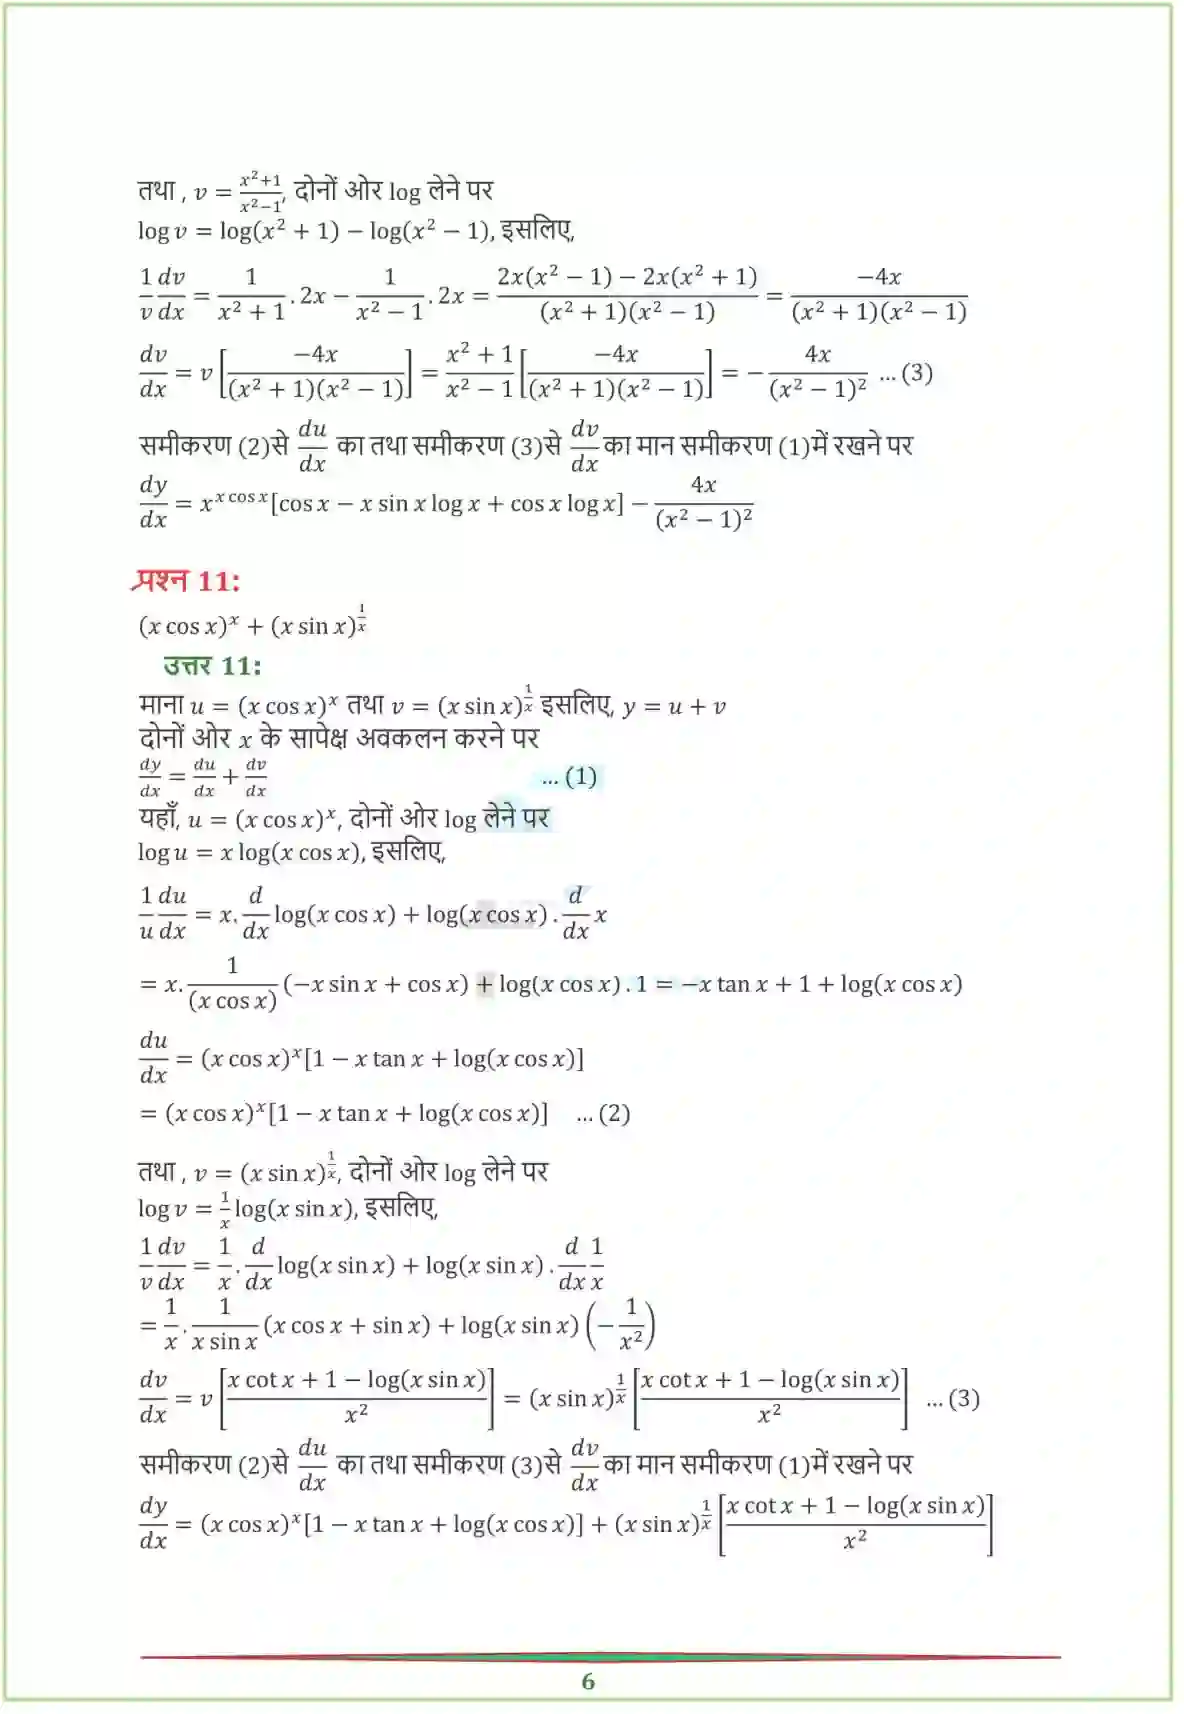 तथा , v = \frac{x^2+1}{x^2-1}, दोनों ओर log लेने पर
log v = log(x² + 1) − log(x² − 1), इसलिए,
\frac{1}{v}\frac{dv}{dx} = \frac{1}{x^2+1}.2x − \frac{1}{x^2-1}.2x = \frac{2x(x^2-1)-2x(x^2+1)}{(x^2+1)(x^2-1)} = \frac{-4x}{(x^2+1)(x^2-1)}
\frac{dv}{dx} = v[\frac{-4x}{(x^2+1)(x^2-1)}] = \frac{x^2+1}{x^2-1}[\frac{-4x}{(x^2+1)(x^2-1)}] = −\frac{4x}{(x^2-1)^2} … (3)
समीकरण (2)से \frac{du}{dx} का तथा समीकरण (3)से \frac{dv}{dx} का मान समीकरण (1)में रखने पर
\frac{dy}{dx} = x^{x cos x}[cos x − x sin x log x + cos x log x] − \frac{4x}{(x^2-1)^2}
प्रश्न 11:
(x cos x)^x + (x sin x)^{\frac{1}{x}}
उत्तर 11:
माना u = (x cos x)^x तथा v = (x sin x)^{\frac{1}{x}} इसलिए, y = u + v
दोनों ओर x के सापेक्ष अवकलन करने पर
\frac{dy}{dx} = \frac{du}{dx} + \frac{dv}{dx} … (1)
यहाँ, u = (x cos x)^x, दोनों ओर log लेने पर
log u = x log(x cos x), इसलिए,
\frac{1}{u}\frac{du}{dx} = x.\frac{d}{dx}log(x cos x) + log(x cos x).\frac{d}{dx}x
= x.\frac{1}{(x cos x)}(−x sin x + cos x) + log(x cos x).1 = −x tan x + 1 + log(x cos x)
\frac{du}{dx} = (x cos x)^x[1 − x tan x + log(x cos x)]
= (x cos x)^x[1 − x tan x + log(x cos x)] … (2)
तथा , v = (x sin x)^{\frac{1}{x}}, दोनों ओर log लेने पर
log v = \frac{1}{x}log(x sin x), इसलिए,
\frac{1}{v}\frac{dv}{dx} = \frac{1}{x}.\frac{d}{dx}log(x sin x) + log(x sin x).\frac{d}{dx}\frac{1}{x}
= \frac{1}{x}.\frac{1}{x sin x}(x cos x + sin x) + log(x sin x)(−\frac{1}{x^2})
\frac{dv}{dx} = v[\frac{x cot x + 1 − log(x sin x)}{x^2}] = (x sin x)^{\frac{1}{x}}[\frac{x cot x + 1 − log(x sin x)}{x^2}] … (3)
समीकरण (2)से \frac{du}{dx} का तथा समीकरण (3)से \frac{dv}{dx} का मान समीकरण (1)में रखने पर
\frac{dy}{dx} = (x cos x)^x[1 − x tan x + log(x cos x)] + (x sin x)^{\frac{1}{x}}[\frac{x cot x + 1 − log(x sin x)}{x^2}]
6